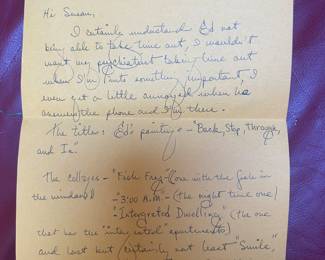 Hi Susan,
I certainly understand Ed not
being able to take time out, I wouldn't
want my psychiatrist taking time out
when I'm into something important, I
even get a little annoyed when he
answers the phone and I'm there.
The titles: Ed's painting - "Back, Stop, Through,
and In".
The collages - "Fish Frog - (one with the fish in
the window)
"3:00 A.M" - (The night time one)
"Intergrated Dwelling" (The one
that has the apartments)
and last but certainly not least "Smile,